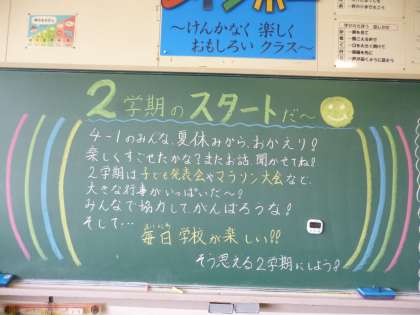 ～けんかなく 楽しく
おもしろい クラス～
2学期のスタートだ～
4-1のみんな、夏休みから、おかえり!
楽しくすごせたかな?またお話、聞かせてね!
2学期は子ども発表会やマラソン大会など、
大きな行事がいっぱいだ～?
みんなで協力して、がんばろうな!
そして…
毎日学校が楽しい!!
まいにち
そう思える2学期にしよう!